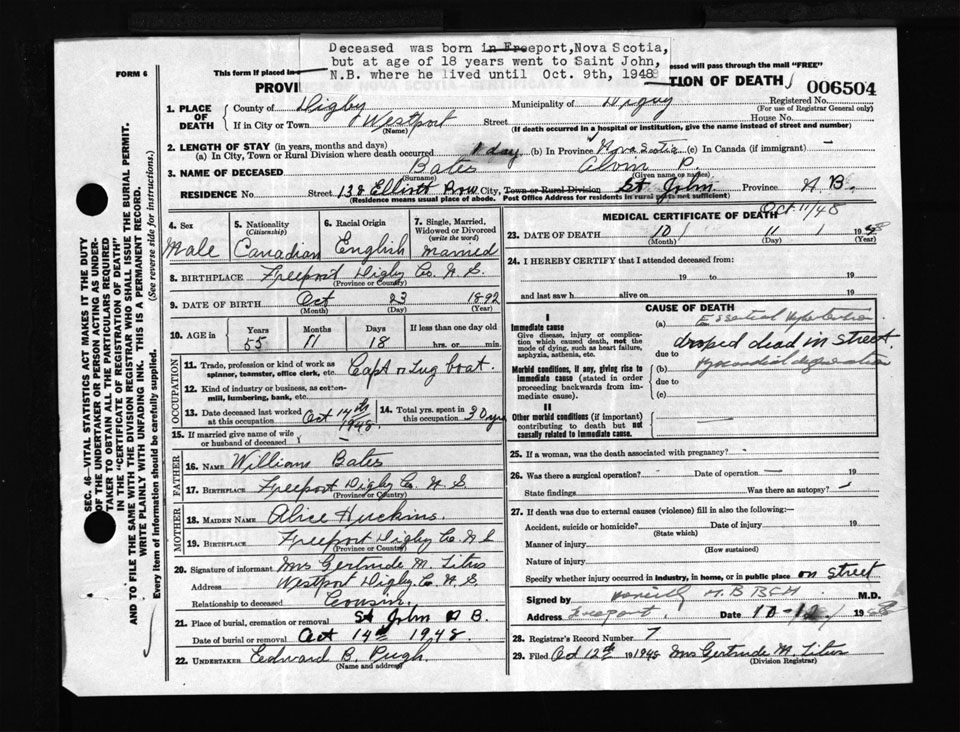 Deceased was born in Freeport, Nova Scotia,
but at age of 18 years went to Saint John,
N.B. where he lived until Oct. 9th, 1948
FORM 6
This form if placed in
essed will pass through the mail "FREE"
PROVI
TION OF DEATH
006504
1. PLACE OF DEATH
County of Digby
Municipality of Digby
Registered No.
(For use of Registrar General only)
If in City or Town Westport (Name)
Street
House No.
(If death occurred in a hospital or institution, give the name instead of street and number)
2. LENGTH OF STAY (in years, months and days)
(a) In City, Town or Rural Division where death occurred 1 day (b) In Province Nova Scotia (c) In Canada (if immigrant) —
3. NAME OF DECEASED Bates Alvin P.
(Surname) (Given name or names)
RESIDENCE No. Street 138 Elliott Row City, Town or Rural Division St John Province N B.
(Residence means usual place of abode. Post Office Address for residents in rural parts not sufficient)
4. Sex
Male
5. Nationality (Citizenship)
Canadian
6. Racial Origin
English
7. Single, Married, Widowed or Divorced (write the word)
Married
8. BIRTHPLACE Freeport Digby Co. N. S.
(Province or Country)
9. DATE OF BIRTH Oct 23 1892
(Month) (Day) (Year)
10. AGE in
Years 55
Months 11
Days 18
If less than one day old
hrs. or min.
OCCUPATION
11. Trade, profession or kind of work as spinner, teamster, office clerk, etc. Capt Tug boat.
12. Kind of industry or business, as cotton-mill, lumbering, bank, etc.
13. Date deceased last worked at this occupation Oct 1948.
14. Total yrs. spent in this occupation
15. If married give name of wife or husband of deceased
FATHER
16. NAME William Bates
17. BIRTHPLACE Freeport Digby Co. N. S.
(Province or Country)
MOTHER
18. MAIDEN NAME Alice Huckins.
19. BIRTHPLACE Freeport Digby Co. N S
(Province or Country)
20. Signature of informant Mrs Gertrude M. Titus
Address Westport Digby Co. N S.
Relationship to deceased Cousin.
21. Place of burial, cremation or removal St John N B.
Date of burial or removal Oct 14th 1948
22. UNDERTAKER Edward B. Pugh.
(Name and address)
MEDICAL CERTIFICATE OF DEATH
Oct 11/48
23. DATE OF DEATH 10 11 1948
(Month) (Day) (Year)
24. I HEREBY CERTIFY that I attended deceased from:
19 to 19
and last saw h alive on 19
CAUSE OF DEATH
I
Immediate cause
Give disease, injury or complication which caused death, not the mode of dying, such as heart failure, asphyxia, asthenia, etc.
Morbid conditions, if any, giving rise to immediate cause (stated in order of proceeding backwards from immediate cause).
II
Other morbid conditions (if important) contributing to death but not causally related to immediate cause.
(a) Essential
droped dead in street
due to
(b)
due to
(c)
25. If a woman, was the death associated with pregnancy?
26. Was there a surgical operation? — Date of operation — 19
State findings Was there an autopsy?
27. If death was due to external causes (violence) fill in also the following:—
Accident, suicide or homicide? Date of injury 19
(State which)
Manner of injury
(How sustained)
Nature of injury
Specify whether injury occurred in industry, in home, or in public place on street
Signed by M.D.
Address Freeport Date 1948
28. Registrar's Record Number 7
29. Filed Oct 12th 1948 Mrs Gertrude M. Titus
(Division Registrar)
SEC. 46—VITAL STATISTICS ACT MAKES IT THE DUTY
OF THE UNDERTAKER OR PERSON ACTING AS UNDER-
TAKER TO OBTAIN ALL THE PARTICULARS REQUIRED
IN THE "CERTIFICATE OF REGISTRATION OF DEATH"
AND TO FILE THE SAME WITH THE DIVISION REGISTRAR WHO SHALL ISSUE THE BURIAL PERMIT.
WRITE PLAINLY WITH UNFADING INK. THIS IS A PERMANENT RECORD.
Every item of information should be carefully supplied. (See reverse side for instructions.)